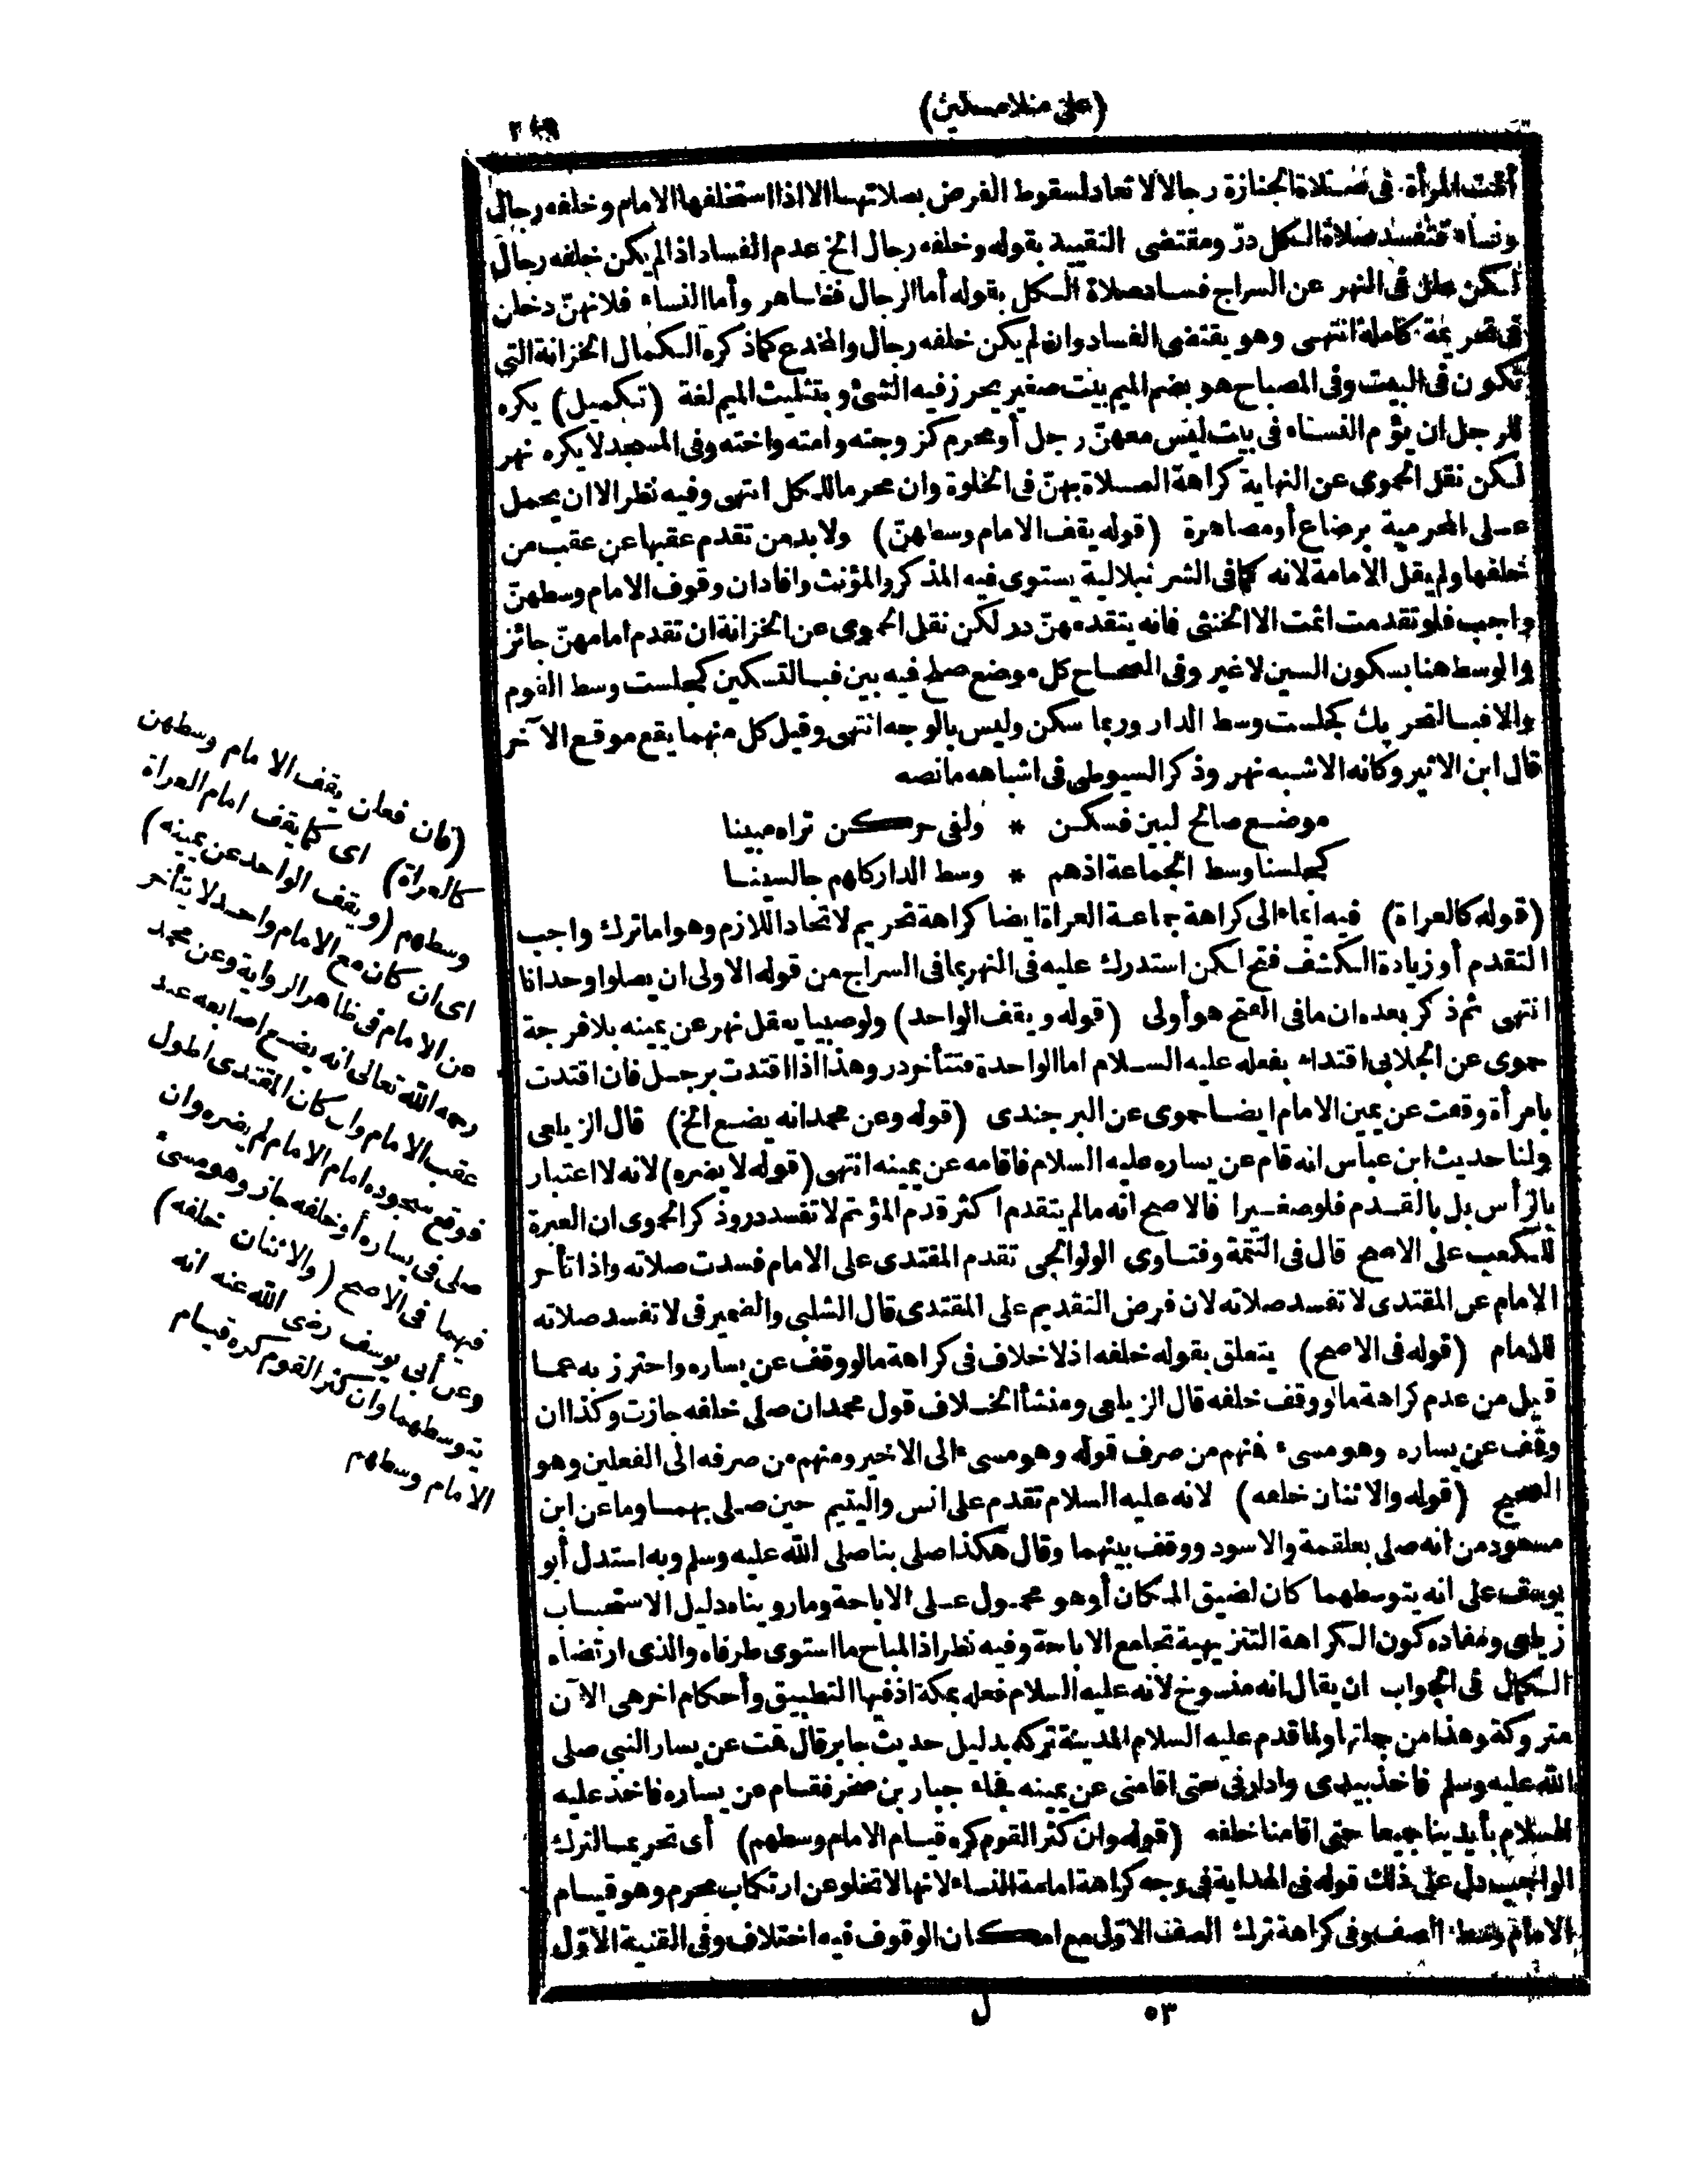 (على منلا مسكين)
أمّت المرأة فى صلاة الجنازة رجالا لا تعاد لسقوط الفرض بصلاتها الا اذا استخلفها الامام وخلفه رجال
ونساء فتفسد صلاة الكل درّ ومقتضى التقييد بقوله وخلفه رجال الخ عدم الفساد اذا لم يكن خلفه رجال
لكن علل فى النهر عن السراج فساد صلاة الكل بقوله أما الرجال فظاهر وأما النساء فلانهنّ دخلن
فى تحريمة كاملة انتهى وهو يقتضى الفساد وان لم يكن خلفه رجال والمخدع كما ذكره الكمال الخزانة التى
تكون فى البيت وفى المصباح هو بضم الميم بيت صغير يحرز فيه الشئ وبتثليث الميم لغة (تكميل) يكره
للرجل ان يؤم النساء فى بيت ليس معهنّ رجل أو محرم كزوجته وامته واخته وفى المسجد لا يكره نهر
لكن نقل الحموى عن النهاية كراهة الصلاة بهنّ فى الخلوة وان محرما للكل انتهى وفيه نظر الا ان يحمل
على المحرمية برضاع أو مصاهرة (قوله يقف الامام وسطهنّ) ولا بد من تقدم عقبها عن عقب من
خلفها ولم يقل الامامة لانه كما فى الشرنبلالية يستوى فيه المذكر والمؤنث وافاد ان وقوف الامام وسطهنّ
واجب فلو تقدمت اثمت الا الخنثى فانه يتقدمهنّ در لكن نقل الحموى عن الخزانة ان تقدم امامهنّ جائز
والوسط هنا بسكون السين لا غير وفى الصحاح كل موضع صلح فيه بين فبالتسكين كجلست وسط القوم
والا فبالتحريك كجلست وسط الدار وربما سكن وليس بالوجه انتهى وقيل كل منهما يقع موقع الآخر
قال ابن الاثير وكانه الاشبه نهر وذكر السيوطى فى اشباهه ما نصه
موضع صالح لبين فسكن * ولفى حركن تراه مبينا
كجلسنا وسط الجماعة اذهم * وسط الدار كلهم جالسينا
(قوله كالعراة) فيه ايماء الى كراهة جماعة العراة ايضا كراهة تحريم لاتحاد اللازم وهو اما ترك واجب
التقدم أو زيادة الكشف فتح لكن استدرك عليه فى النهر بما فى السراج من قوله الاولى ان يصلوا وحدانا
انتهى ثم ذكر بعده ان ما فى الفتح هو أولى (قوله ويقف الواحد) ولو صبيا يعقل نهر عن يمينه بلا فرجة
حموى عن الجلابى اقتداء بفعله عليه السلام اما الواحدة فتتأخر در وهذا اذا اقتدت برجل فان اقتدت
بامرأة وقعت عن يمين الامام ايضا حموى عن البرجندى (قوله وعن محمد انه يضع الخ) قال الزيلعى
ولنا حديث ابن عباس انه قام عن يساره عليه السلام فاقامه عن يمينه انتهى (قوله لا يضره) لانه لا اعتبار
بالرأس بل بالقدم فلو صغيرا فالاصح انه ما لم يتقدم اكثر قدم المؤتم لا تفسد در وذكر الحموى ان العبرة
للكعب على الاصح قال فى التتمة وفتاوى الولوالجى تقدم المقتدى على الامام فسدت صلاته واذا تأخر
الامام عن المقتدى لا تفسد صلاته لان فرض التقديم على المقتدى قال الشلبى والضمير فى لا تفسد صلاته
للامام (قوله فى الاصح) يتعلق بقوله خلفه اذ لا خلاف فى كراهة ما لو وقف عن يساره واحترز به عما
قيل من عدم كراهة ما لو وقف خلفه قال الزيلعى ومنشأ الخلاف قول محمد ان صلى خلفه جازت وكذا ان
وقف عن يساره وهو مسىء فنهم من صرف قوله وهو مسىء الى الاخير ومنهم من صرفه الى الفعلين وهو
الصحيح (قوله والاثنان خلفه) لانه عليه السلام تقدم على انس واليتيم حين صلى بهما وما عن ابن
مسعود من انه صلى بعلقمة والاسود ووقف بينهما وقال هكذا صلى بنا صلى الله عليه وسلم وبه استدل أبو
يوسف على انه يتوسطهما كان لضيق المكان أو هو محمول على الاباحة وما رويناه دليل الاستحباب
زيلعى ومفاده كون الكراهة التنزيهية تجامع الاباحة وفيه نظر اذ المباح ما استوى طرفاه والذى ارتضاه
الكمال فى الجواب ان يقال انه منسوخ لأنه عليه السلام فعله بمكة اذ فيها التطبيق وأحكام اخر هى الآن
متروكة وهذا من جلتها ولما قدم عليه السلام المدينة تركه بدليل حديث جابر قال قت عن يسار النبى صلى
الله عليه وسلم فاخذ بيدى وادارنى حتى اقامنى عن يمينه فجاء جبار بن صخر فقام عن يساره فاخذ عليه
السلام بأيدينا جيعا حتى اقامنا خلفه (قوله وان كثر القوم كره قيام الامام وسطهم) أى تحريما لترك
الواجب دل على ذلك قوله فى الهداية فى وجه كراهة امامة النساء لانها لا تخلو عن ارتكاب محرم وهو قيام
الامام وسط الصف وفى كراهة ترك الصف الاوّل مع امكان الوقوف فيه اختلاف وفى القنية الاوّل
٥٣ ل
(فان فعلن يقف الامام وسطهن
كالعراة) اى كما يقف امام العراة
وسطهم (ويقف الواحد عن يمينه)
اى ان كان مع الامام واحد لا يتأخر
عن الامام فى ظاهر الرواية وعن محمد
رحمه الله تعالى انه يضع اصابعه عند
عقب الامام وان كان المقتدى اطول
فوقع سجوده امام الامام لم يضره وان
صلى فى يساره أو خلفه جاز وهو مسئ
فيهما فى الاصح (والاثنان خلفه)
وعن أبى يوسف رضى الله عنه انه
يتوسطهما وان كثر القوم كره قيام
الامام وسطهم